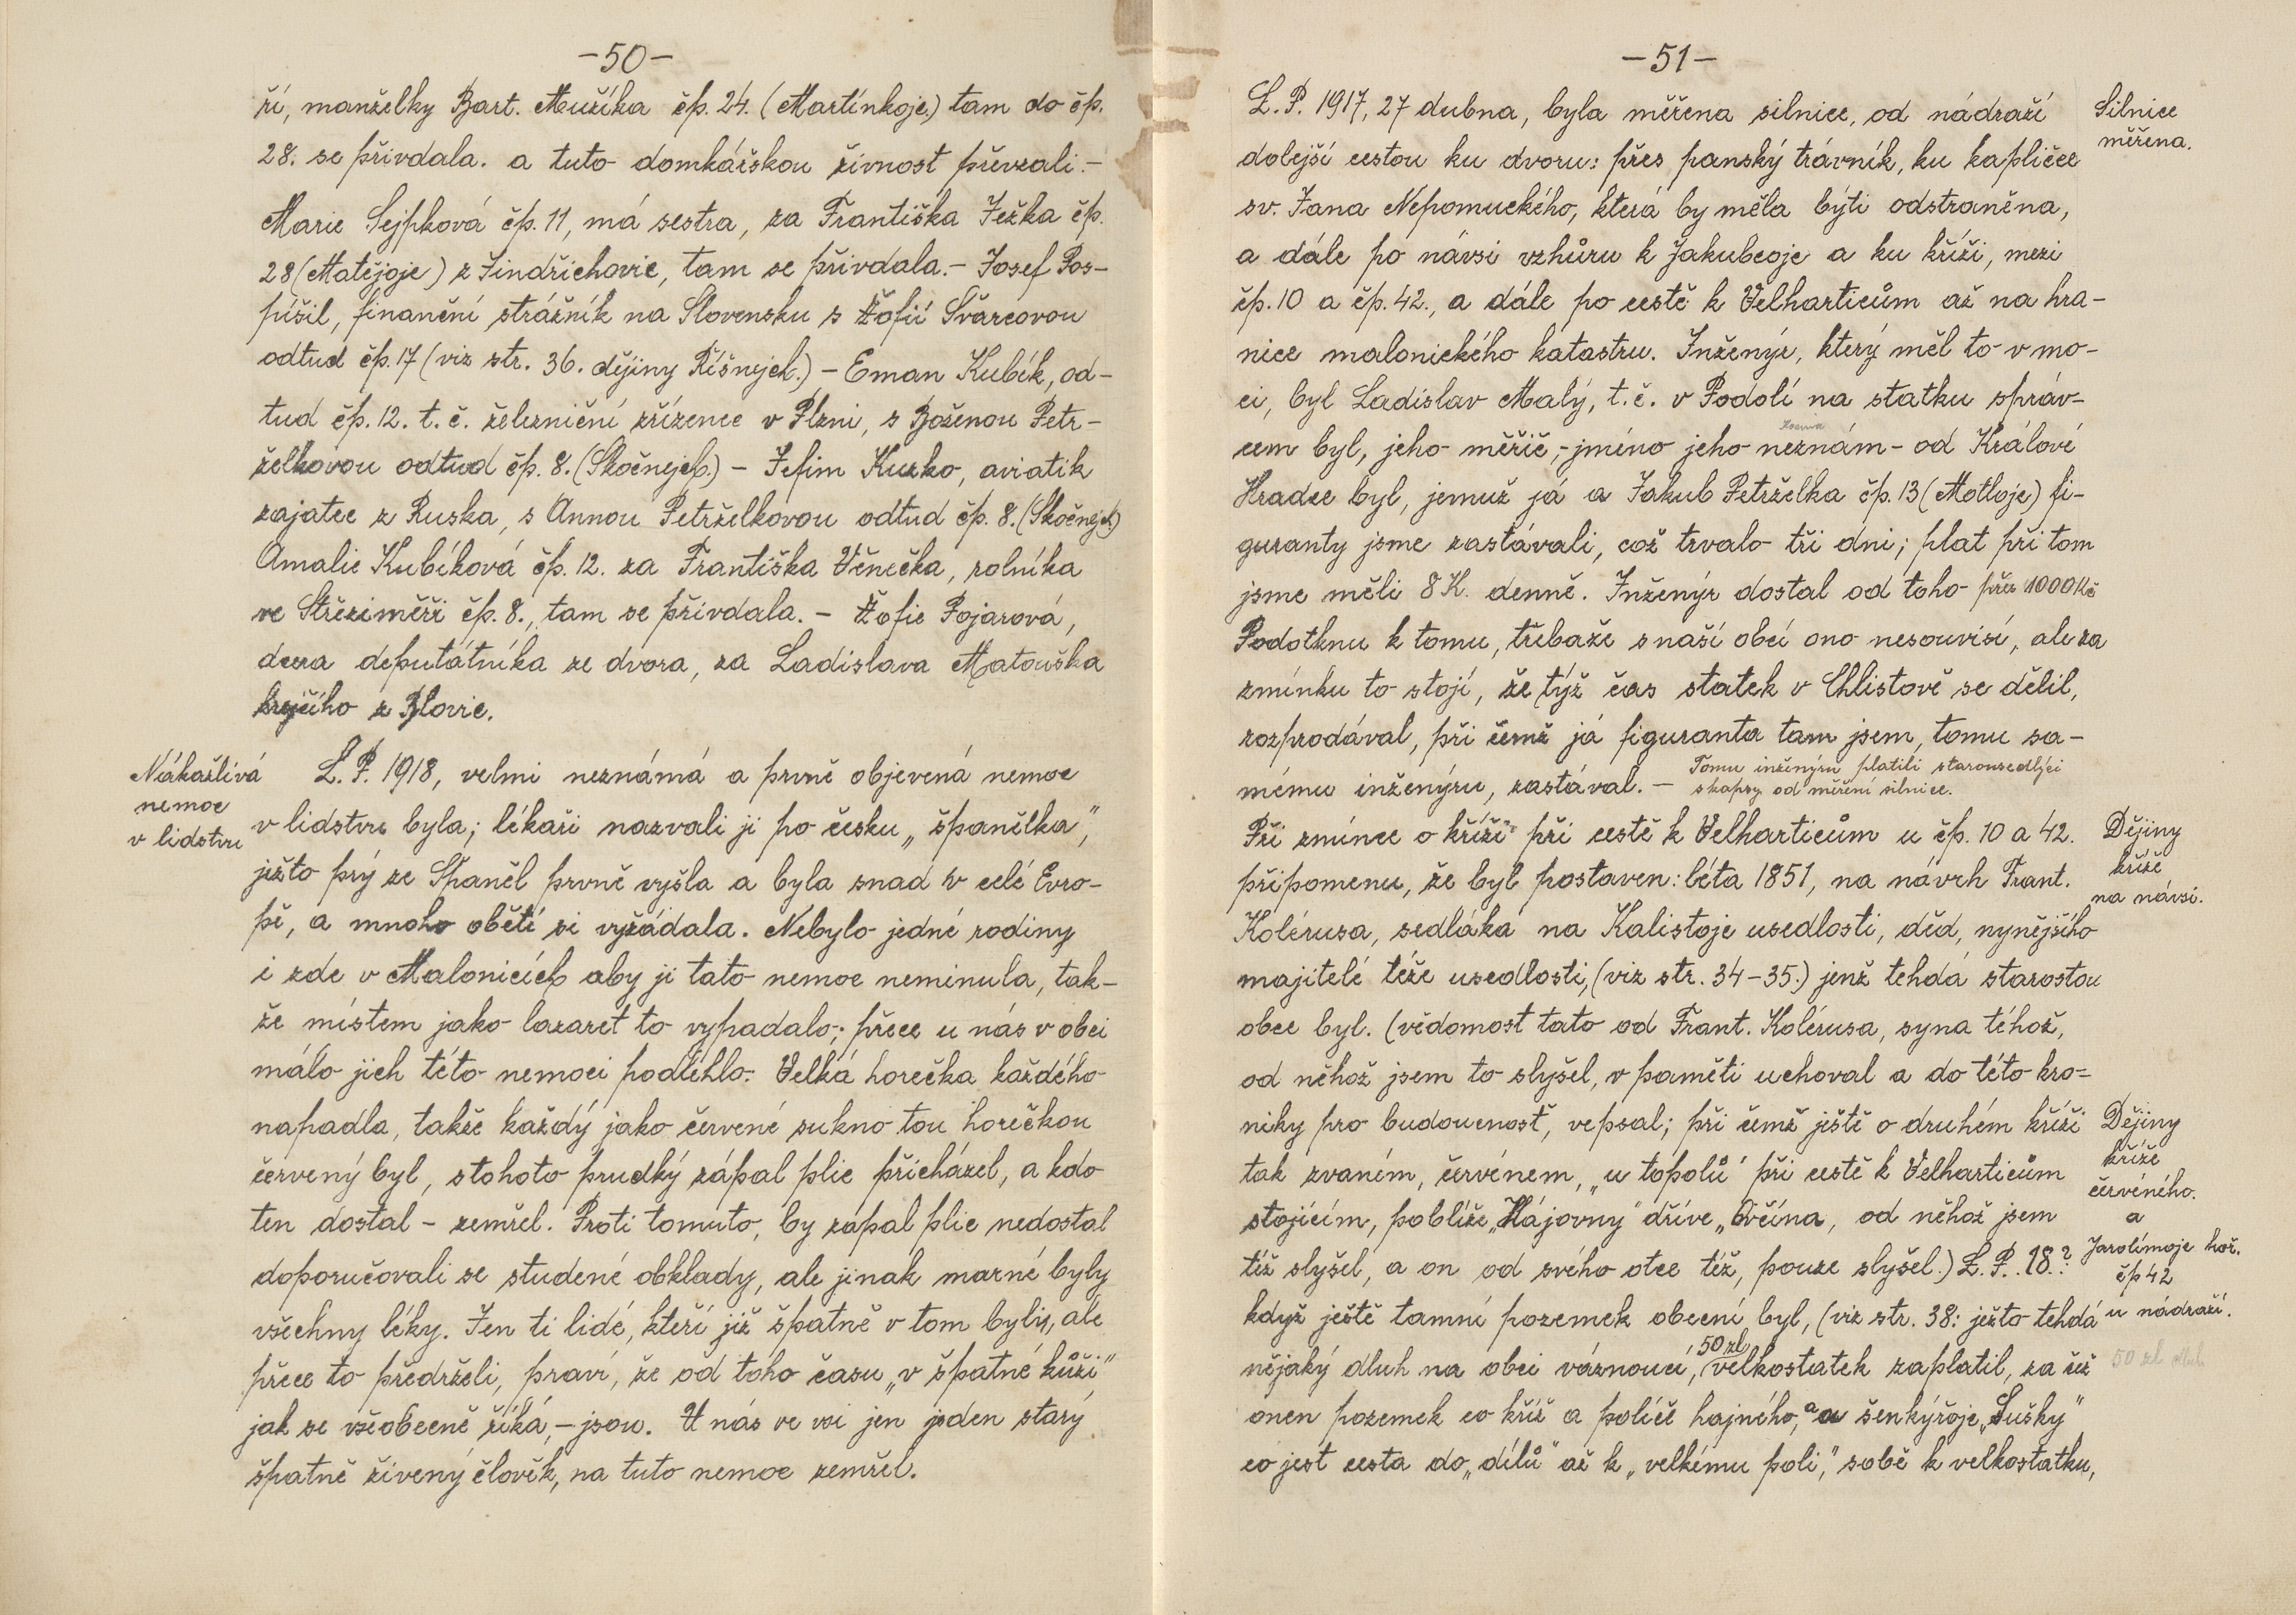 -50-
ří, manželky Bart. Mužíka čp. 24. (Martínkoje.) tam do čp.
28. se přivdala. a tuto domkářskou živnost převzali.-
Marie Sejpková čp. 11, má sestra, za Františka Ježka čp.
28 (Matějoje) z Jindřichovic, tam se přivdala.- Josef Pos-
píšil, finanční strážník na Slovensku s Žofií Švárcovou
odtud čp. 17 (viz str. 36. dějiny Říšnejch.) - Eman Kubík, od-
tud čp. 12. t. č. železniční zřízenec v Plzni, s Boženou Petr-
želkovou odtud čp. 8. (Skočnejch.) - Jefim Kuzko, aviatik
zajatec z Ruska, s Annou Petrželkovou odtud čp. 8. (Skočnejch.)
Amalie Kubíková čp. 12. za Františka Věnečka, rolníka
ve Střeziměři čp. 8., tam se přivdala. - Žofie Pojarová,
dcera deputátníka ze dvora, za Ladislava Matouška
krejčího z Blovic.
Nákažlivá
nemoc
v lidstvu
L. P. 1918, velmi neznámá a prvně objevená nemoc
v lidstvu byla; lékaři nazvali ji po česku „španělka",
ježto prý ze Španěl prvně vyšla a byla snad v celé Evro-
pě, a mnoho obětí si vyžádala. Nebylo jedné rodiny
i zde v Malonicích aby ji tato nemoc neminula, tak-
že místem jako lazaret to vypadalo; přece u nás v obci
málo jich této nemoci podlehlo. Velká horečka každého
napadla, takže každý jako červené sukno tou horečkou
červený byl, stohoto prudký zápal plic přicházel, a kdo
ten dostal - zemřel. Proti tomuto, by zápal plic nedostal
doporučovali se studené obklady, ale jinak marné byly
všechny léky. Jen ti lidé, kteří již špatně v tom byli, ale
přece to předrželi, praví, že od toho času „v špatné kůži"
jak se všeobecně říká,- jsou. U nás ve vsi jen jeden starý
špatně živený člověk, na tuto nemoc zemřel.
-51-
L. P. 1917, 27 dubna, byla měřena silnice, od nádraží
Silnice
měřena.
dolejší cestou ku dvoru: přes panský trávník, ku kapličce
sv. Jana Nepomuckého, která by měla býti odstraněna,
a dále po návsi vzhůru k Jakubcoje a ku kříži, mezi
čp. 10 a čp. 42., a dále po cestě k Velharticům až na hra-
nice malonického katastru. Inženýr, který měl to v mo-
ci, byl Ladislav Malý, t. č. v Podolí na statku správ-
cem byl, jeho měřič,- jméno jeho neznám - od Králové
Hradce byl, jemuž já a Jakub Petrželka čp. 13 (Motloje) fi-
guranty jsme zastávali, což trvalo tři dni; plat při tom
jsme měli 8 K. denně. Inženýr dostal od toho přes 1000 Kč
Podotknu k tomu, třebaže s naší obcí ono nesouvisí, ale za
zmínku to stojí, že týž čas statek v Chlistově se dělil,
rozprodával, při čemž já figuranta tam jsem, tomu sa-
mému inženýru, zastával. - Tomu inženýru platili starousedlíci
s kapsy od měření silnice.
Při zmínce o kříži při cestě k Velharticům u čp. 10 a 42.
Dějiny
kříže
na návsi.
připomenu, že byl postaven: léta 1851, na návrh Frant.
Kolérusa, sedláka na Kalistoje usedlosti, děd, nynějšího
majitelé téže usedlosti, (viz str. 34-35.) jenž tehdá starostou
obce byl. (vědomost tato od Frant. Kolérusa, syna téhož,
od něhož jsem to slyšel, v paměti uchoval a do této kro-
niky pro budoucnost, vepsal; při čemž ještě o druhém kříži
Dějiny
kříže
červéného.
a
Jarolímoje hoř.
čp 42
u nádraží.
tak zvaném, červénem, „u topolů" při cestě k Velharticům
stojícím, poblíže „Hájovny" dříve „Ovčína, od něhož jsem
též slyšel, a on od svého otce též, pouze slyšel.) L. P. 18.?
když ještě tamní pozemek obecní byl, (viz str. 38: ježto tehdá
nějaký dluh na obci váznoucí, 50 zl. velkostatek zaplatil, za čež
50 zl dluh
onen pozemek co kříž a políčě hajného, a šenkýřoje „Sušky"
co jest cesta do „dílů" až k „velkému poli", sobě k velkostatku,